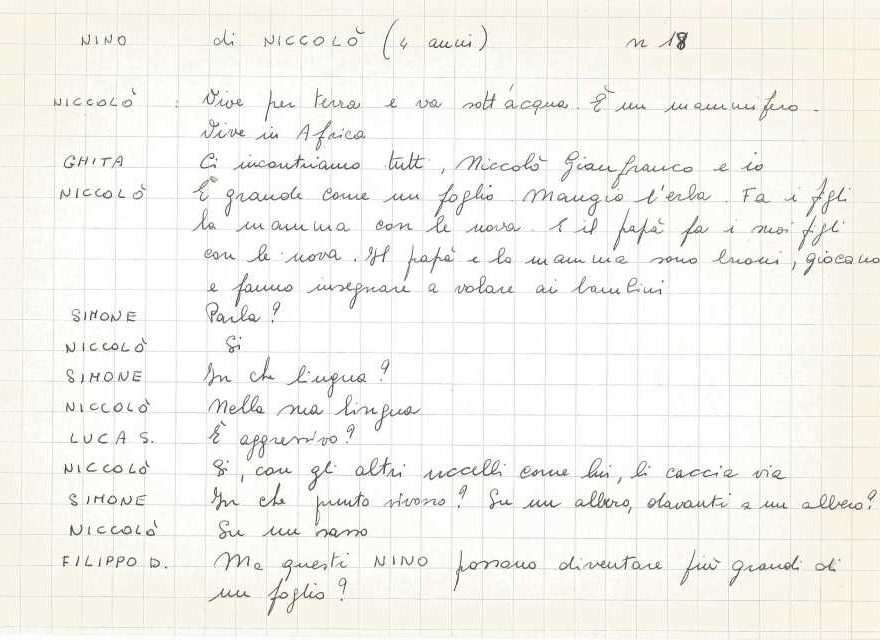 NINO di NICCOLÒ (4 anni) n 18
NICCOLÒ : Vive per terra e va sott'acqua. È un mammifero.
Vive in Africa
GHITA Ci incontriamo tutt, Niccolò Gianfranco e io
NICCOLÒ È grande come un foglio. Mangia l'erba. Fa i figli
la mamma con le uova. E il papà fa i suoi figli
con le uova. Il papà e la mamma sono buoni, giocano
e fanno insegnare a volare ai bambini
SIMONE Parla?
NICCOLÒ Si
SIMONE In che lingua?
NICCOLÒ Nella sua lingua
LUCA S. È aggressivo?
NICCOLÒ Si, con gli altri uccelli come lui, li caccia via
SIMONE In che punto vivono? Su un albero, davanti a un albero?
NICCOLÒ Su un sasso
FILIPPO D. Ma questi NINO possono diventare più grandi di
un foglio?